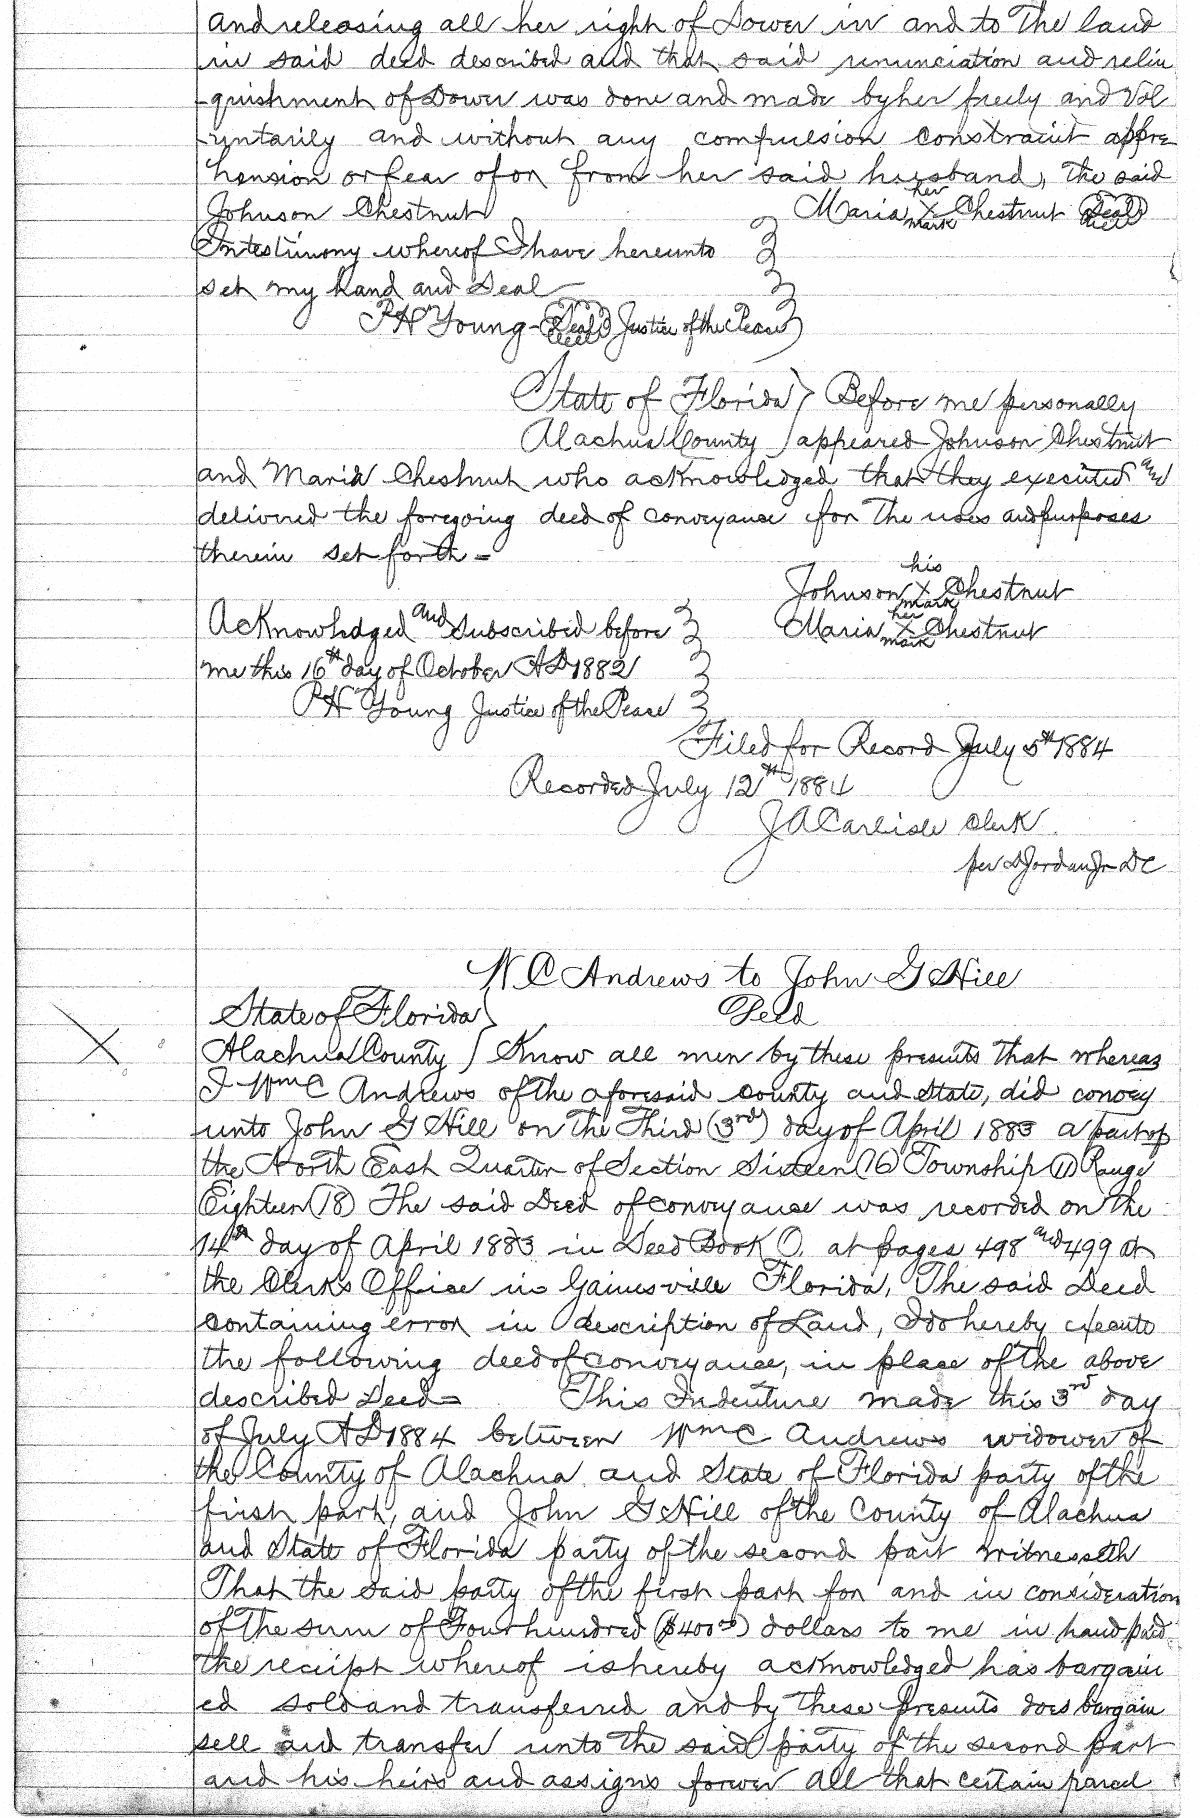 and releasing all her right of Dower in and to the land
in said deed described and that said renunciation and relin
quishment of Dower was done and made by her freely and Vol
untarily and without any compulsion constraint appre
hension or fear of or from her said husband, the said
Johnson Chestnut
her
Maria X Chestnut Seal
mark
In testimony whereof I have hereunto
set my hand and Seal
P H Young - Seal Justice of the Peace
State of Florida } Before me personally
Alachua County } appeared Johnson Chestnut
and Maria Chestnut who acknowledged that they executed and
delivered the foregoing deed of conveyance for the uses and purposes
therein set forth =
his
Johnson X Chestnut
mark
her
Maria X Chestnut
mark
Acknowledged and Subscribed before
me this 16th day of October AD 1882
P H Young Justice of the Peace
Filed for Record July 5th 1884
Recorded July 12th 1884
J A Carlisle Clerk
per D Jordan Jr DC
W C Andrews to John G Hill
Deed
State of Florida }
Alachua County } Know all men by these presents that whereas
I Wm C Andrews of the aforesaid county and State, did convey
unto John G Hill on the Third (3rd) day of April 1883 a part of
the North East Quarter of Section Sixteen (16) Township (11) Range
Eighteen (18) The said Deed of conveyance was recorded on the
14th day of April 1883 in Deed Book O. at pages 498 and 499 at
the Clerks Office in Gainesville Florida, The said Deed
containing error in description of Land, I do hereby execute
the following deed of conveyance, in place of the above
described Deed = This Indenture made this 3rd day
of July AD 1884 between Wm C Andrews widower of
the County of Alachua and State of Florida party of the
first part, and John G Hill of the County of Alachua
and State of Florida party of the second part Witnesseth
That the said party of the first part for and in consideration
of the sum of Four hundred ($400.00) dollars to me in hand paid
the receipt whereof is hereby acknowledged has bargain
ed sold and transferred and by these presents does bargain
sell and transfer unto the said party of the second part
and his heirs and assigns forever all that certain parcel